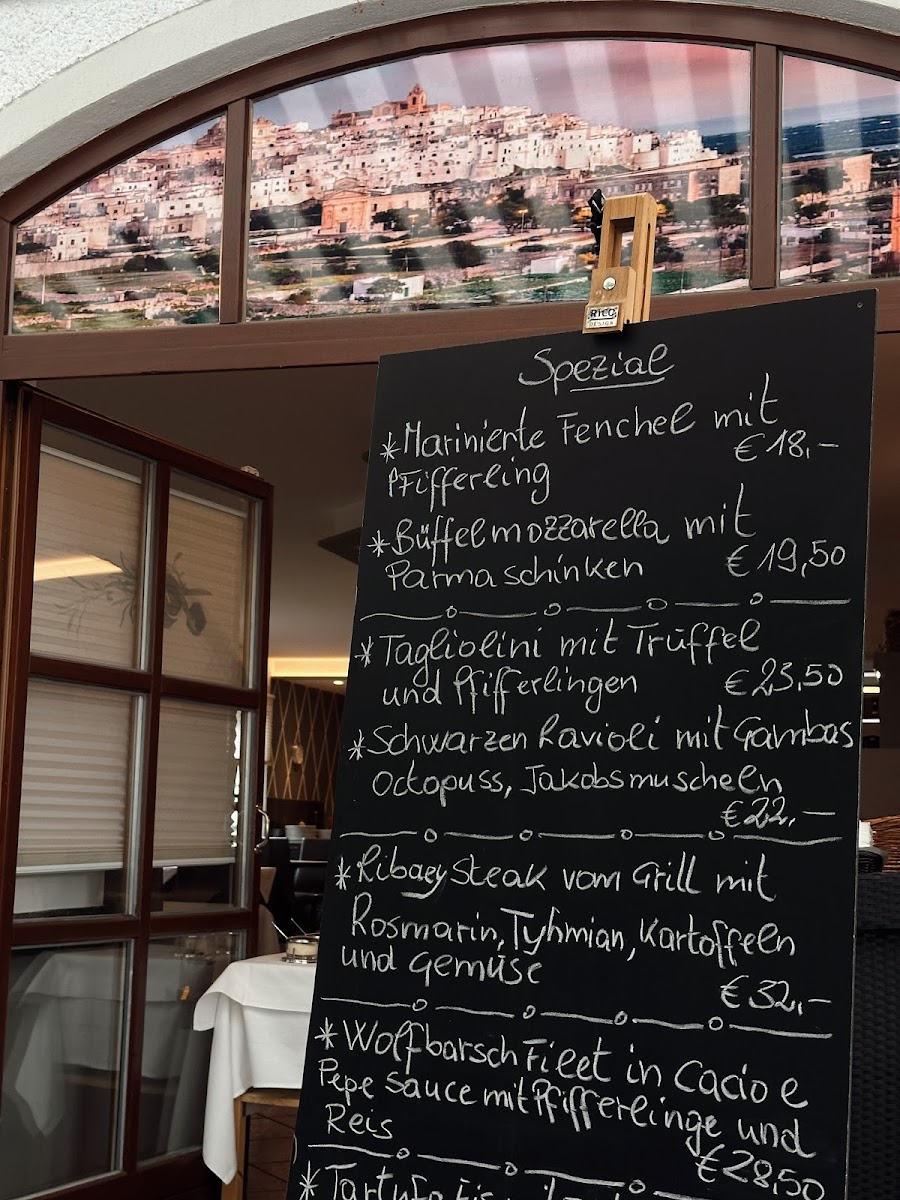 RICO
DESIGN
Spezial
*Marinierte Fenchel mit
€18,-
Pfifferling
*Büffelmozzarella mit
Parmaschinken €19,50
*Tagliolini mit Trüffel
und Pfifferlingen €23,50
*Schwarzen Ravioli mit Gambas
Octopuss, Jakobsmuscheln
€22,-
*Ribaey Steak vom Grill mit
Rosmarin, Tyhmian, Kartoffeln
und Gemüse
€32,-
*Wolfbarsch Fileet in Cacio e
Pepe Sauce mit Pfifferlinge und
Reis
€28,50
*Tartufo Eis